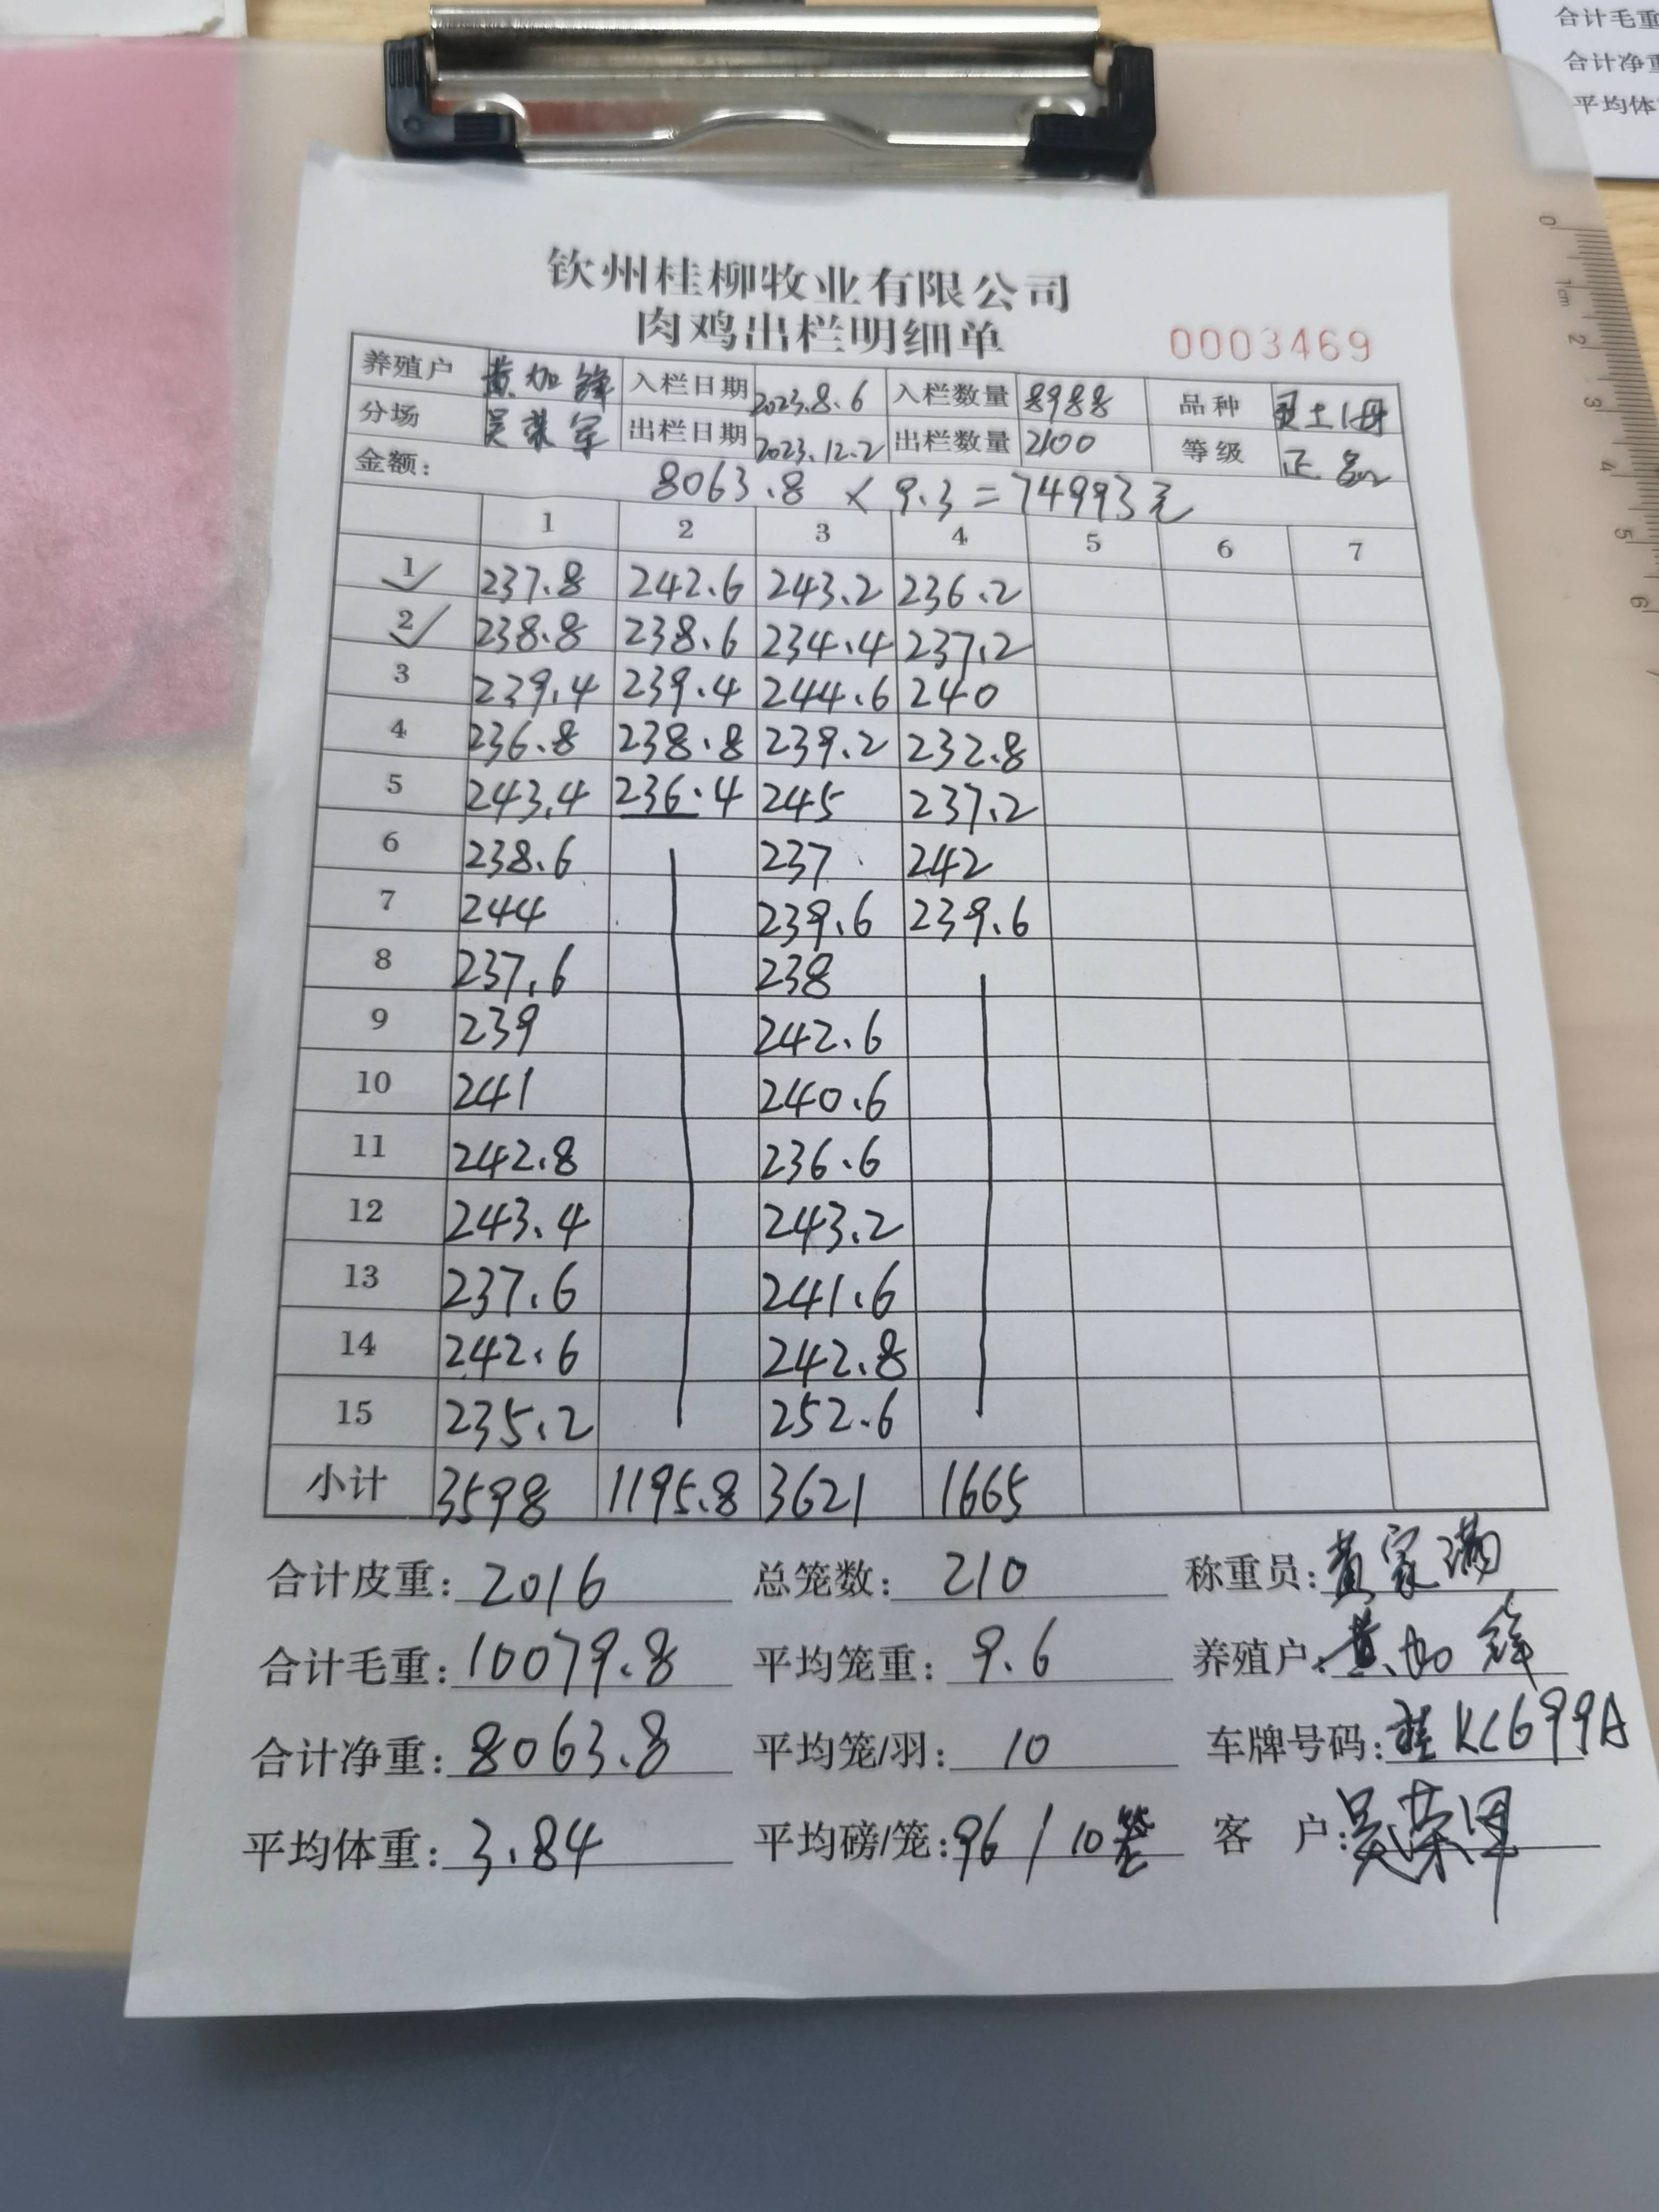 合计毛重
合计净重
平均体
钦州桂柳牧业有限公司
肉鸡出栏明细单
0003469
养殖户 黄加锋 入栏日期 2023.8.6 入栏数量 8988 品种
分场 吴荣军 出栏日期 2023.12.2 出栏数量 2100 等级 正品
金额: 8063.8 × 9.3=74993元
1 2 3 4 5 6 7
1 237.8 242.6 243.2 236.2
2 238.8 238.6 234.4 237.2
3 239.4 239.4 244.6 240
4 236.8 238.8 239.2 232.8
5 243.4 236.4 245 237.2
6 238.6 237 242
7 244 239.6 239.6
8 237.6 238
9 239 242.6
10 241 240.6
11 242.8 236.6
12 243.4 243.2
13 237.6 241.6
14 242.6 242.8
15 235.2 252.6
小计 3598 1195.8 3621 1665
合计皮重: 2016 总笼数: 210 称重员: 黄家满
合计毛重: 10079.8 平均笼重: 9.6 养殖户: 黄加锋
合计净重: 8063.8 平均笼/羽: 10 车牌号码: 桂KC699A
平均体重: 3.84 平均磅/笼: 96/10笼 客 户: 吴荣军
0 1cm 2 3 4 5 6 7